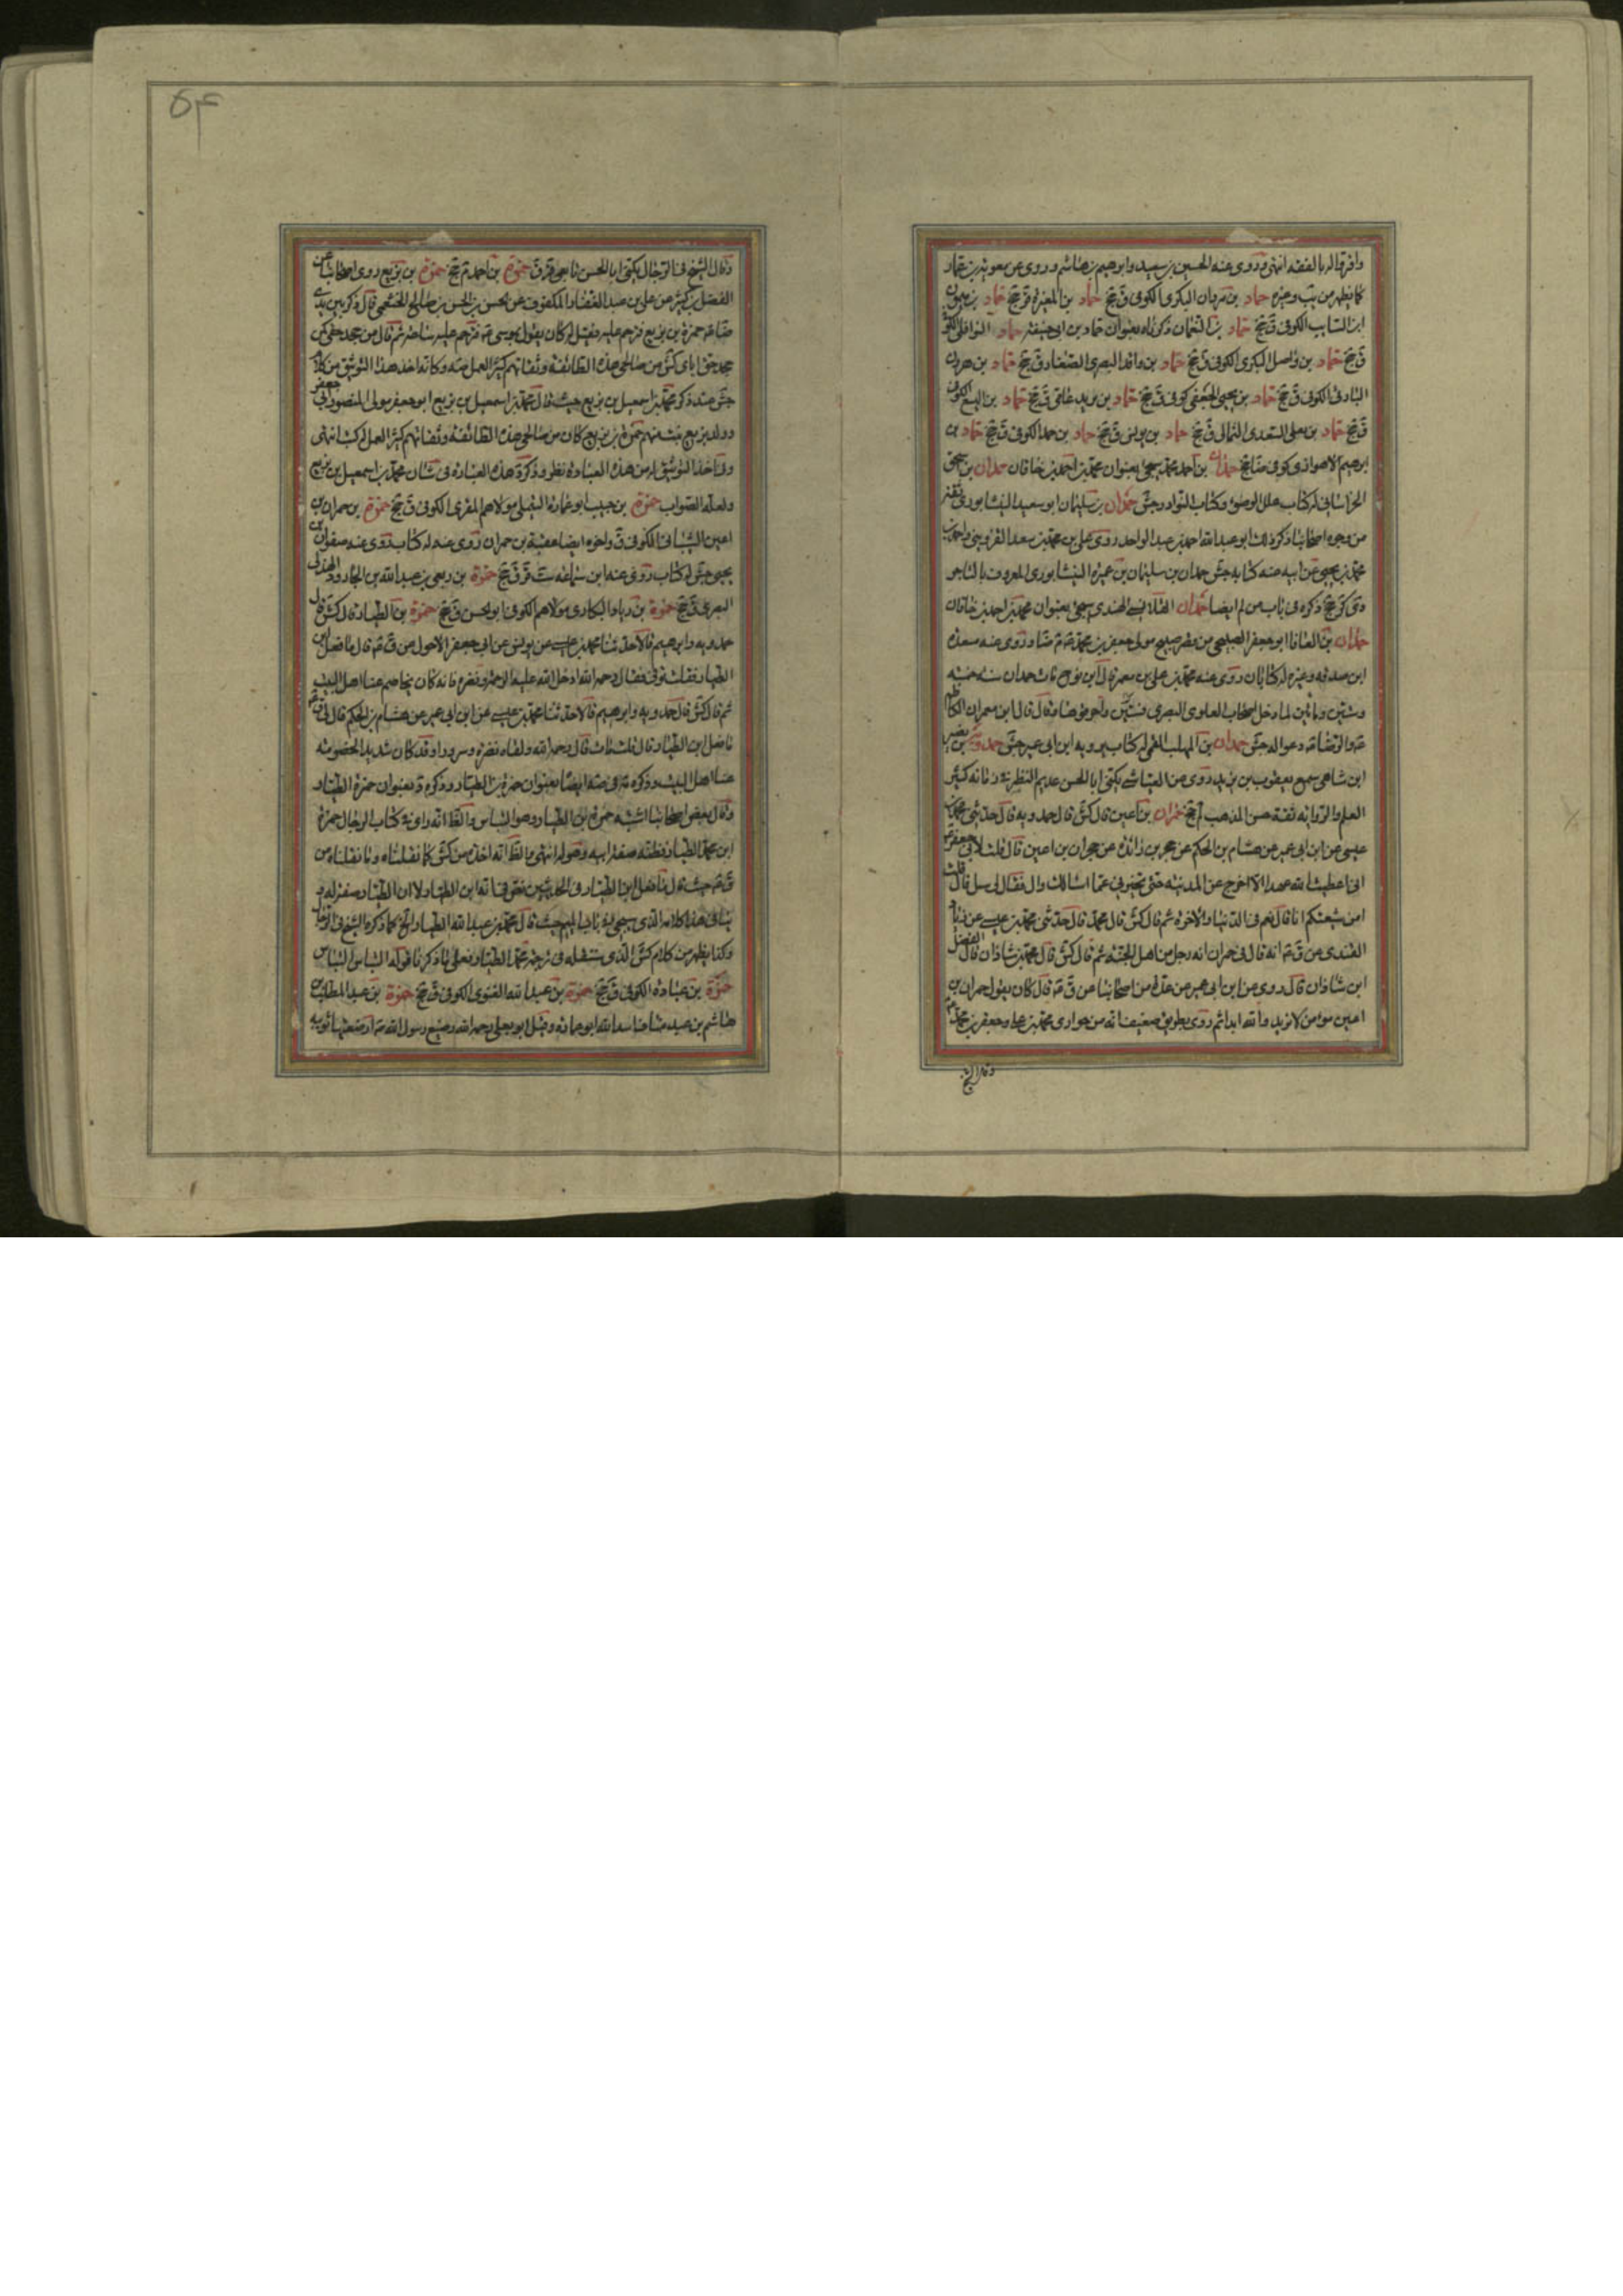 واقر له بالفقه انتهى وروى عنه الحسين بن سعيد وابرهيم بن هاشم وروى عن معوية بن عمار
كما يظهر من يب وغيره حماد بن مروان البكرى الكوفى ق جخ حماد بن المغيرة قر جخ حماد بن ميمون
ابن السايب الكوفى ق جخ حماد بن النعمان ذكرناه بعنوان حماد بن ابى حنيفة حماد النوا
ق جخ حماد بن واصل البكرى الكوفى ق جخ حماد بن واقد البصرى الصفار ق جخ حماد بن هرون
البارقى الكوفى ق جخ حماد بن يحيى الجعفى كوفى ق جخ حماد بن يزيد عامى ق جخ حماد بن اليسع الكوفى
ق جخ حماد بن يعلى السعدى الثمالى ق جخ حماد بن يونس ق جخ حماد الكوفى ق جخ حماد بن
ابرهيم الاهوازى كوفى جخ حمدان بن احمد محمد سيجئ بعنوان محمد بن احمد بن خاقان حمدان بن اسحق
الخراسانى له كتاب علل الوضوء وكتاب النوادر جش حمدان بن سليمان ابو سعيد النيشابورى ثقة
من وجوه اصحابنا ذكر ذلك ابو عبد الله احمد بن عبد الواحد روى على بن محمد بن سعد القزوينى واحمد بن
محمد بن يحيى عن ابيه عنه كتابه جش حمدان بن سليمان بن عميرة النيشابورى المعروف بالتاجر
دى كر جخ ذكره فى باب من لم ايضا حمدان القلانسى النهدى سيجئ بعنوان محمد بن احمد بن خاقان
حمدان بن المعافا ابو جعفر الصبيحى من قصر صبيح مولى جعفر بن محمد روى عنه مسعدة
ابن صدقه وغيره له كتابان روى عنه محمد بن على بن معمر قال ابن نوح مات حمدان سنة خمسة
وستين ومأتين لما دخل اصحاب العلوى البصرى قال قال ابن معمران
دعوا له جش حمدان بن المهلب القمى له كتاب يرويه ابن ابى عمير جش حمدويه بن نصير
ابن شاهى سمع يعقوب بن يزيد روى عن العياشى يكنى ابا الحسن عديم النظير فى زمانه كثير
العلم والرواية ثقة حسن المذهب لم جخ حمران بن اعين قال كش قال حمدويه قال حدثنى محمد بن
عيسى عن ابن ابى عمير عن هشام بن الحكم عن حجر بن زائدة عن حمران بن اعين قال قلت لابى جعفر
انى اعطيت الله عهدا لا اخرج عن المدينة حتى تخبرنى عما اسالك قال فقال لى سل قال قلت
امن شيعتكم انا قال نعم فى الدنيا والاخرة ثم قال كش قال محمد قال حدثنى محمد بن عيسى عن زياد
القندى عن ق انه قال فى حمران انه رجل من اهل الجنة ثم قال كش قال محمد بن شاذان قال الفضل
ابن شاذان قال روى عن ابن ابى عمير عن عدة من اصحابنا عن ق قال كان يقول حمران بن
اعين مؤمن لا يرتد والله ابدا ثم روى بطريق ضعيف انه من حوارى محمد بن على وجعفر بن محمد
وقال الشيخ
۵۴
وقال الشيخ فى الرجال يكنى ابا الحسن تابعى قر ق حمزة بن احمد لم جخ حمزة بن بزيع روى اصحابنا عن
الفضل بن كثير عن على بن عبد الغفار المكفوف عن الحسن بن الحسن بن صالح الخثعمى قال ذكر بين يدى
حمزة بن بزيع فترحم عليه فقيل له كان يقول بموسى فترحم عليه ساعة ثم قال من جحد حقى كمن
جحد حق اباى كش من صالحى هذه الطائفة وثقاتهم كثير العمل صه وكانه اخذ هذا التوثيق من كلام
جش عند ذكر محمد بن اسمعيل بن بزيع حيث قال محمد بن اسمعيل بن بزيع ابو جعفر مولى المنصور ابى جعفر
وولد بزيع بيت منهم حمزة بن بزيع كان من صالحى هذه الطائفة وثقاتهم كثير العمل له كتب انتهى
وفى اخذ التوثيق له من هذه العبارة نظر وذكر هذه العبارة فى شان محمد بن اسمعيل بن بزيع
ولعله الصواب حمزة بن حبيب ابو عمارة التيملى مولاهم المقرى الكوفى ق جخ حمزة بن حمران بن
اعين الشيبانى الكوفى ق واخوه ايضا عقبة بن حمران روى عنه له كتاب روى عنه صفوان بن
يحيى جش له كتاب روى عنه ابن سماعة ست قر ق جخ حمزة بن ربعى بن عبد الله بن الجارود الهذلى
البصرى ق جخ حمزة بن زياد البكارى مولاهم الكوفى ابو الحسن ق جخ حمزة بن الطيار قال كش قال
حمدويه وابرهيم قالا حدثنا محمد بن عيسى عن يونس عن ابى جعفر الاحول عن ق قال ما فعل ابن
الطيار فقلت توفى فقال رحمه الله ادخل الله عليه الرحمة ونضره فانه كان يخاصم عنا اهل البيت
ثم قال كش قال حمدويه وابرهيم قالا حدثنا محمد بن عيسى عن ابن ابى عمير عن هشام بن الحكم قال لى ق
ما فعل ابن الطيار قال قلت مات قال رحمه الله ولقاه نضرة وسرورا وقد كان شديد الخصومة
عنا اهل البيت وذكره فى صه ايضا بعنوان حمزة بن الطيار وذكره د بعنوان حمزة الطيار
وقال بعض اصحابنا اشتبه حمزة ابن الطيار وهو التباس والظ انه راى فى كتاب الرجال حمزة
ابن محمد الطيار فظنه صفة ابيه وهو له انتهى والظ انه اخذه من كش كما نقلناه وما نقلناه من
ق حيث قال ما فعل ابن الطيار فى الحديثين نص فى انه ابن الطيار لا ان الطيار صفة له و
ينافى هذا كلامه الذى سيجئ فى باب الميم حيث قال محمد بن عبد الله الطيار الخ كما ذكره الشيخ فى الرجال
وكذا يظهر من كلام كش الذى سننقله فى ترجمة محمد الطيار فعلى ما ذكرنا قوله التباس التباس
حمزة بن عبادة الكوفى ق جخ حمزة بن عبد الله الغنوى الكوفى ق جخ حمزة بن عبد المطلب بن
هاشم بن عبد مناف اسد الله ابو عمارة وقيل ابو يعلى رحمه الله رضيع رسول الله ارضعتهما ثويبه